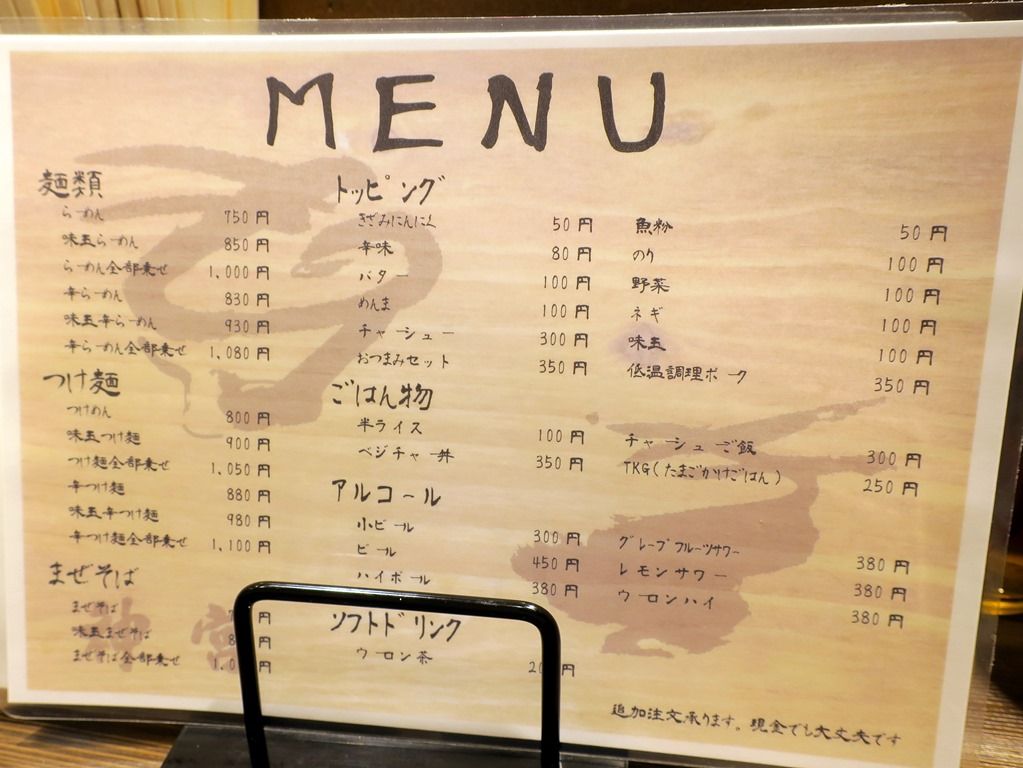 MENU
麺類
らーめん 750円
味玉らーめん 850円
らーめん全部乗せ 1,000円
辛らーめん 830円
味玉辛らーめん 930円
辛らーめん全部乗せ 1,080円
つけ麺
つけめん 800円
味玉つけ麺 900円
つけ麺全部乗せ 1,050円
辛つけ麺 880円
味玉辛つけ麺 980円
辛つけ麺全部乗せ 1,100円
まぜそば
まぜそば 円
味玉まぜそば 円
まぜそば全部乗せ 円
トッピング
きざみにんにく 50円
辛味 80円
バター 100円
めんま 100円
チャーシュー 300円
おつまみセット 350円
魚粉 50円
のり 100円
野菜 100円
ネギ 100円
味玉 100円
低温調理ポーク 350円
ごはん物
半ライス 100円
ベジチャー丼 350円
チャーシューご飯 300円
TKG(たまごかけごはん) 250円
アルコール
小ビール 300円
ビール 450円
ハイボール 380円
グレープフルーツサワー 380円
レモンサワー 380円
ウーロンハイ 380円
ソフトドリンク
ウーロン茶 円
追加注文承ります。現金でも大丈夫です